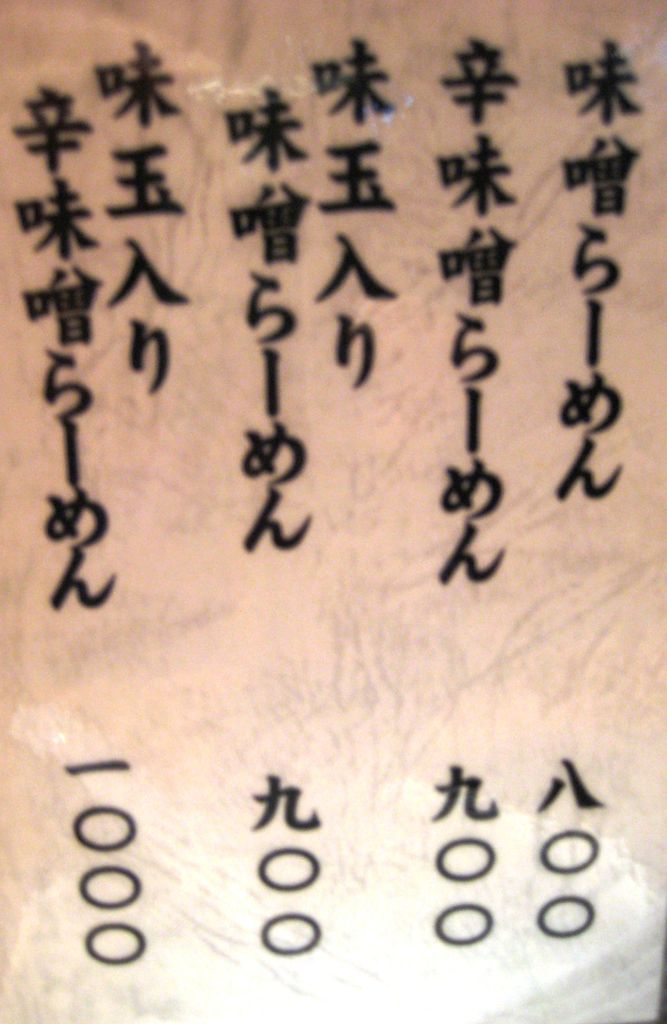 味噌らーめん
八〇〇
辛味噌らーめん
九〇〇
味玉入り
味噌らーめん
九〇〇
味玉入り
辛味噌らーめん
一〇〇〇